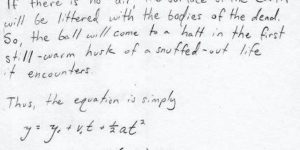 If there is no air, the surface of the Earth
will be littered with the bodies of the dead.
So, the ball will come to a halt in the first
still-warm husk of a snuffed-out life
it encounters.
Thus, the equation is simply
y = y₀ + v₀t + ½at²